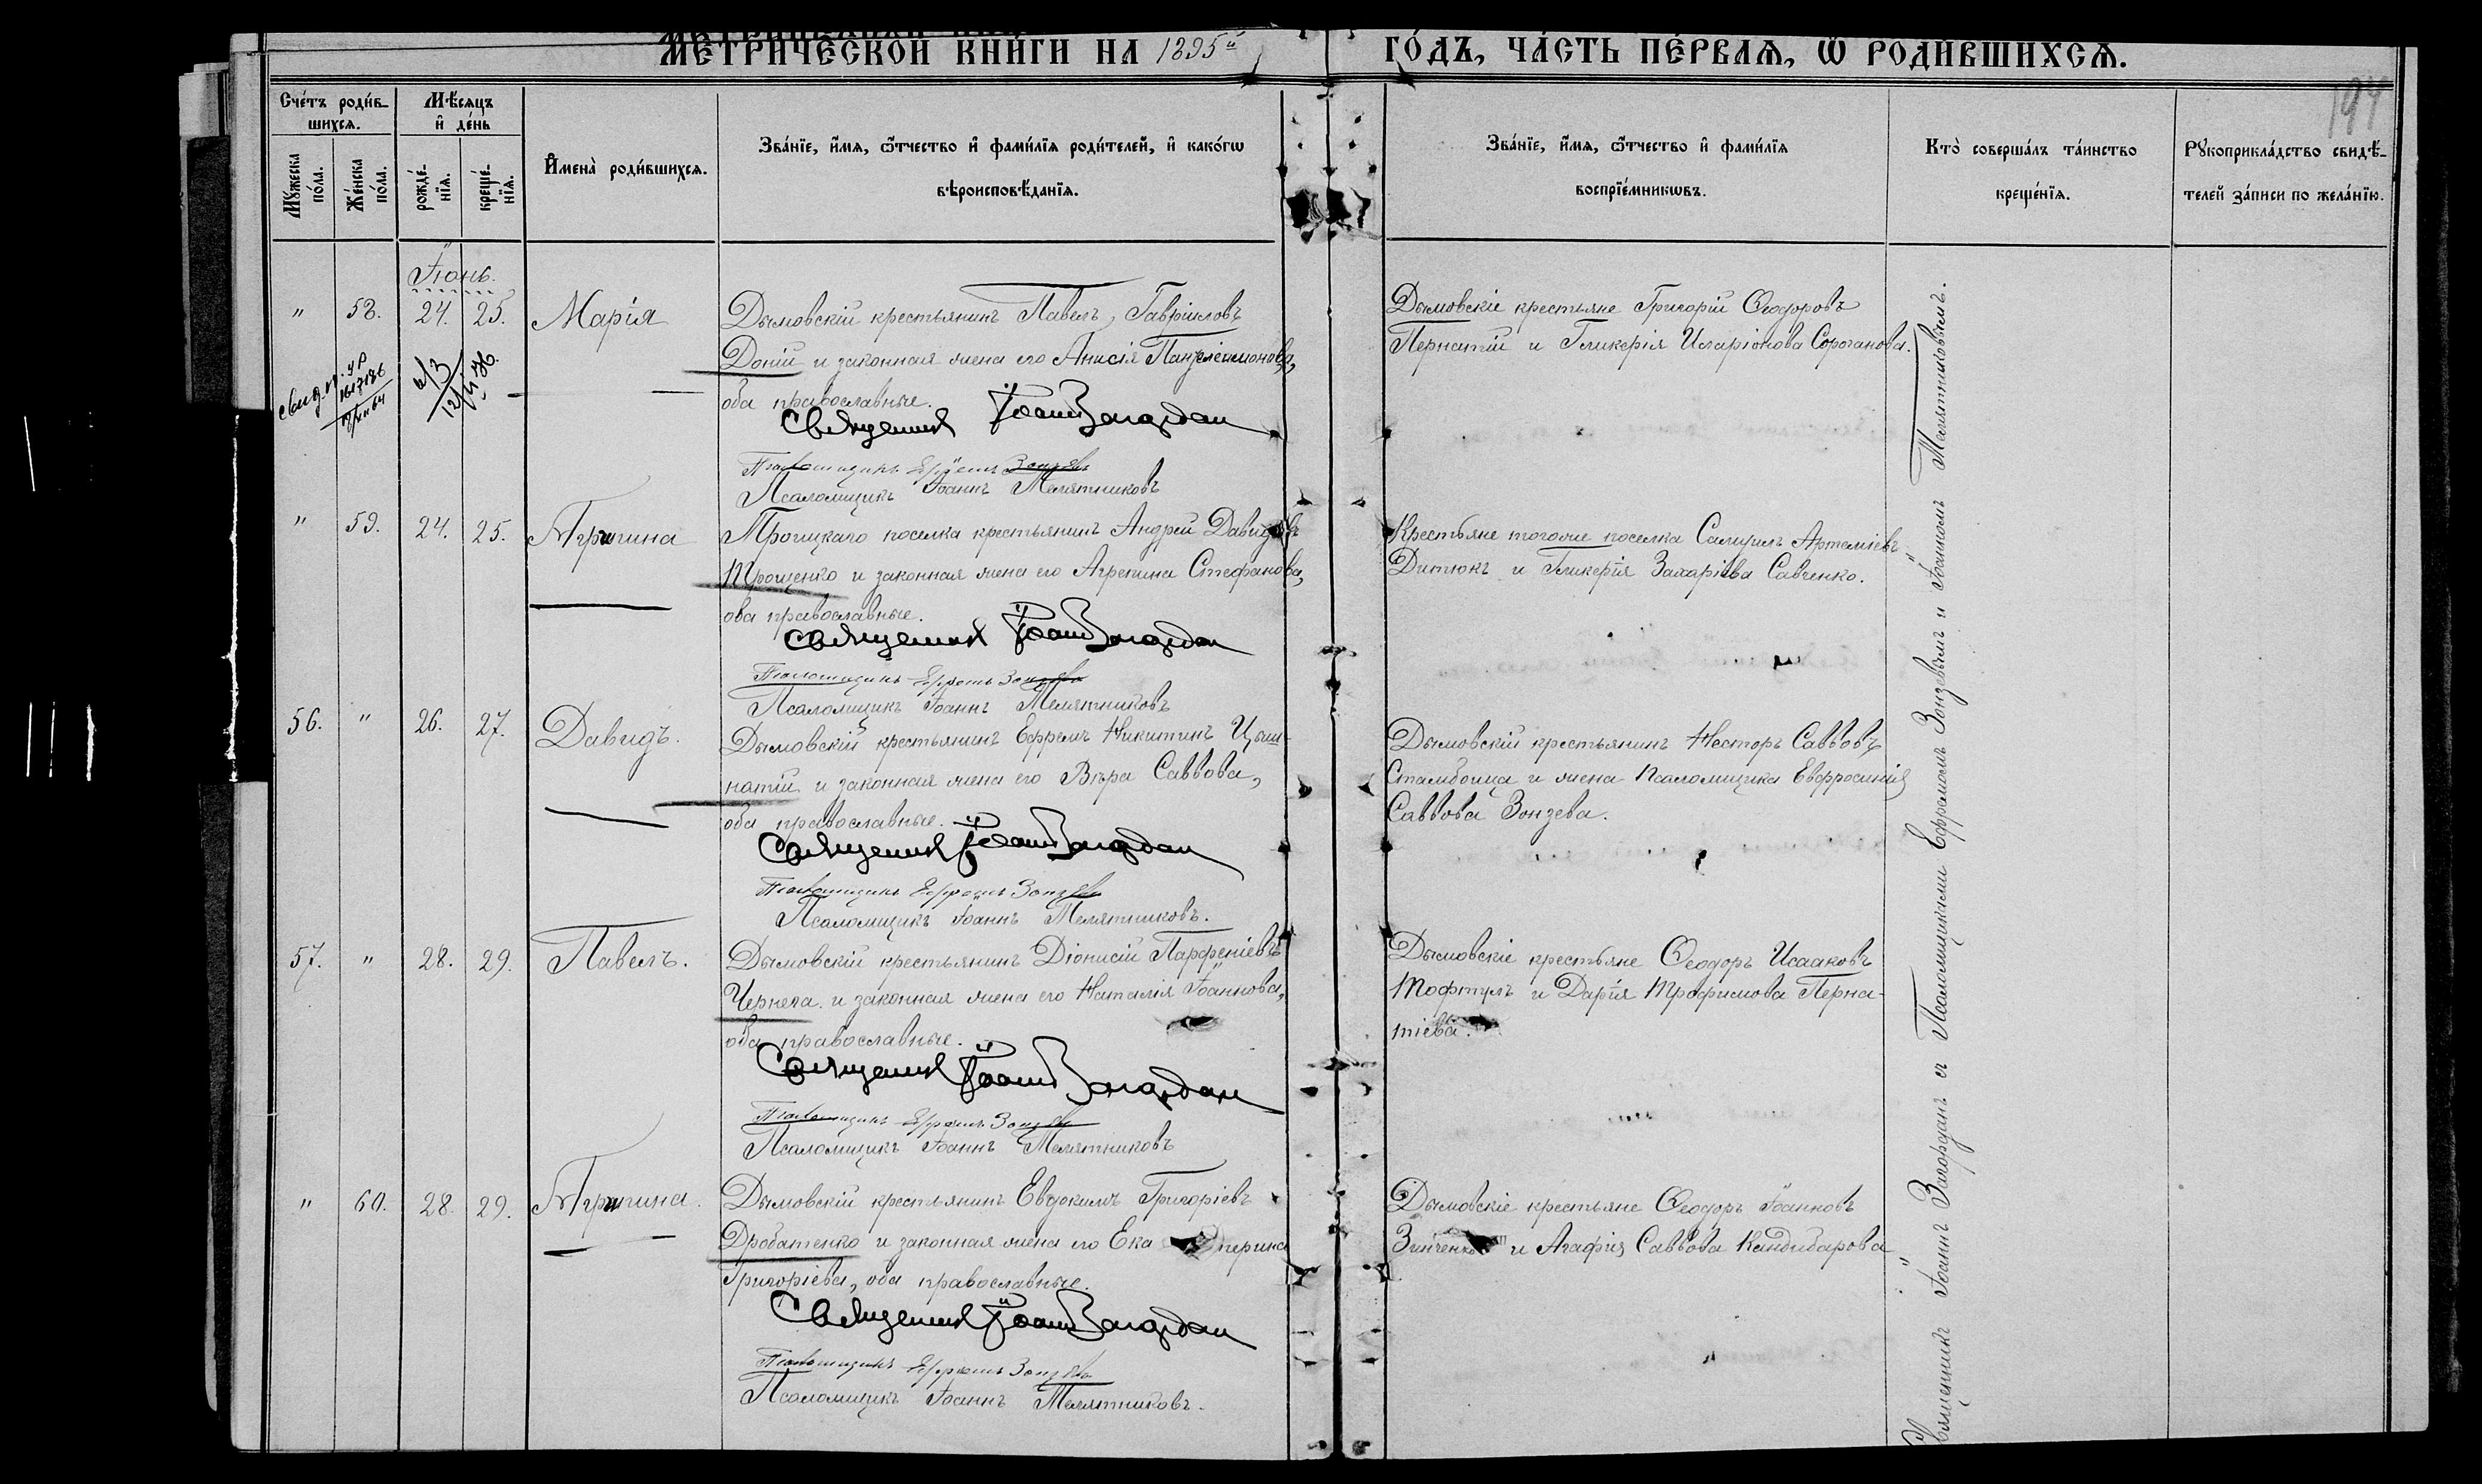 МЕТРИ́ЧЕСКОЙ КНИ́ГИ НА 1895й ГО́ДЪ, ЧА́СТЬ ПЕ́РВАѦ, Ѡ РОДИ́ВШИХСѦ.
194
Сче́тъ роди́в-
шихсѧ.
Мѣ́сѧцъ
и҆ де́нь
Мꙋ́жеска по́ла.
Же́нска по́ла.
рожде́-
нїѧ.
креще́-
нїѧ.
И҆мена̀ роди́вшихсѧ.
Зва́нїе, и҆́мѧ, ѻ҆́тчество и҆ фами́лїѧ роди́телей, и҆ како́гѡ
вѣроисповѣ́данїѧ.
Зва́нїе, и҆́мѧ, ѻ҆́тчество и҆ фами́лїѧ
воспрїе́мникѡвъ.
Кто̀ соверша́лъ та́инство
креще́нїѧ.
Рꙋкоприкла́дство свидѣ́-
телей за́писи по жела́нїю.
Іюнь.
" 58. 24. 25. Марія
Дымовскій крестьянинъ Павелъ Гавріиловъ
Доній и законная жена его Анисія Пантелеимонова,
оба православные.
Священникъ Іоаннъ Загордан
Псаломщикъ Ефремъ Зонзевъ
Псаломщикъ Іоаннъ Телятниковъ
Дымовскіе крестьяне Григорій Ѳеодоровъ
Пернатій и Гликерія Иларіонова Сороганова.
" 59. 24. 25. Агрипина
Троицкаго поселка крестьянинъ Андрей Давидовъ
Трощенко и законная жена его Агрепина Стефанова,
оба православные.
Священникъ Іоаннъ Загордан
Псаломщикъ Ефремъ Зонзевъ
Псаломщикъ Іоаннъ Телятниковъ
Крестьяне тогоже поселка Самуилъ Артеміевъ
Дитюкъ и Гликерія Захаріева Савченко.
56. " 26. 27. Давидъ.
Дымовскій крестьянинъ Ефремъ Никитинъ Цыш-
натій и законная жена его Вѣра Саввова,
оба православные.
Священникъ Іоаннъ Загордан
Псаломщикъ Ефремъ Зонзевъ
Псаломщикъ Іоаннъ Телятниковъ.
Дымовскій крестьянинъ Несторъ Саввовъ
Стамбонца и жена Псаломщика Евфросинія
Саввова Зонзева.
57. " 28. 29. Павелъ.
Дымовскій крестьянинъ Діонисій Парфеніевъ
Чернега и законная жена его Наталія Іоаннова,
оба православные.
Священникъ Іоаннъ Загордан
Псаломщикъ Ефремъ Зонзевъ
Псаломщикъ Іоаннъ Телятниковъ
Дымовскіе крестьяне Ѳеодоръ Исааковъ
Мофтулъ и Дарія Трофимова Перна-
тіева.
" 60. 28. 29. Агрипина.
Дымовскій крестьянинъ Евдокимъ Григоріевъ
Дробатенко и законная жена его Ека терина
Григоріева, оба православные.
Священникъ Іоаннъ Загордан
Псаломщикъ Ефремъ Зонзевъ
Псаломщикъ Іоаннъ Телятниковъ.
Дымовскіе крестьяне Ѳеодоръ Іоанновъ
Зинченко и Агафія Саввова Кандибарова
Священникъ Іоаннъ Загорданъ съ Псаломщиками Ефремомъ Зонзевымъ и Іоанномъ Телятниковымъ.